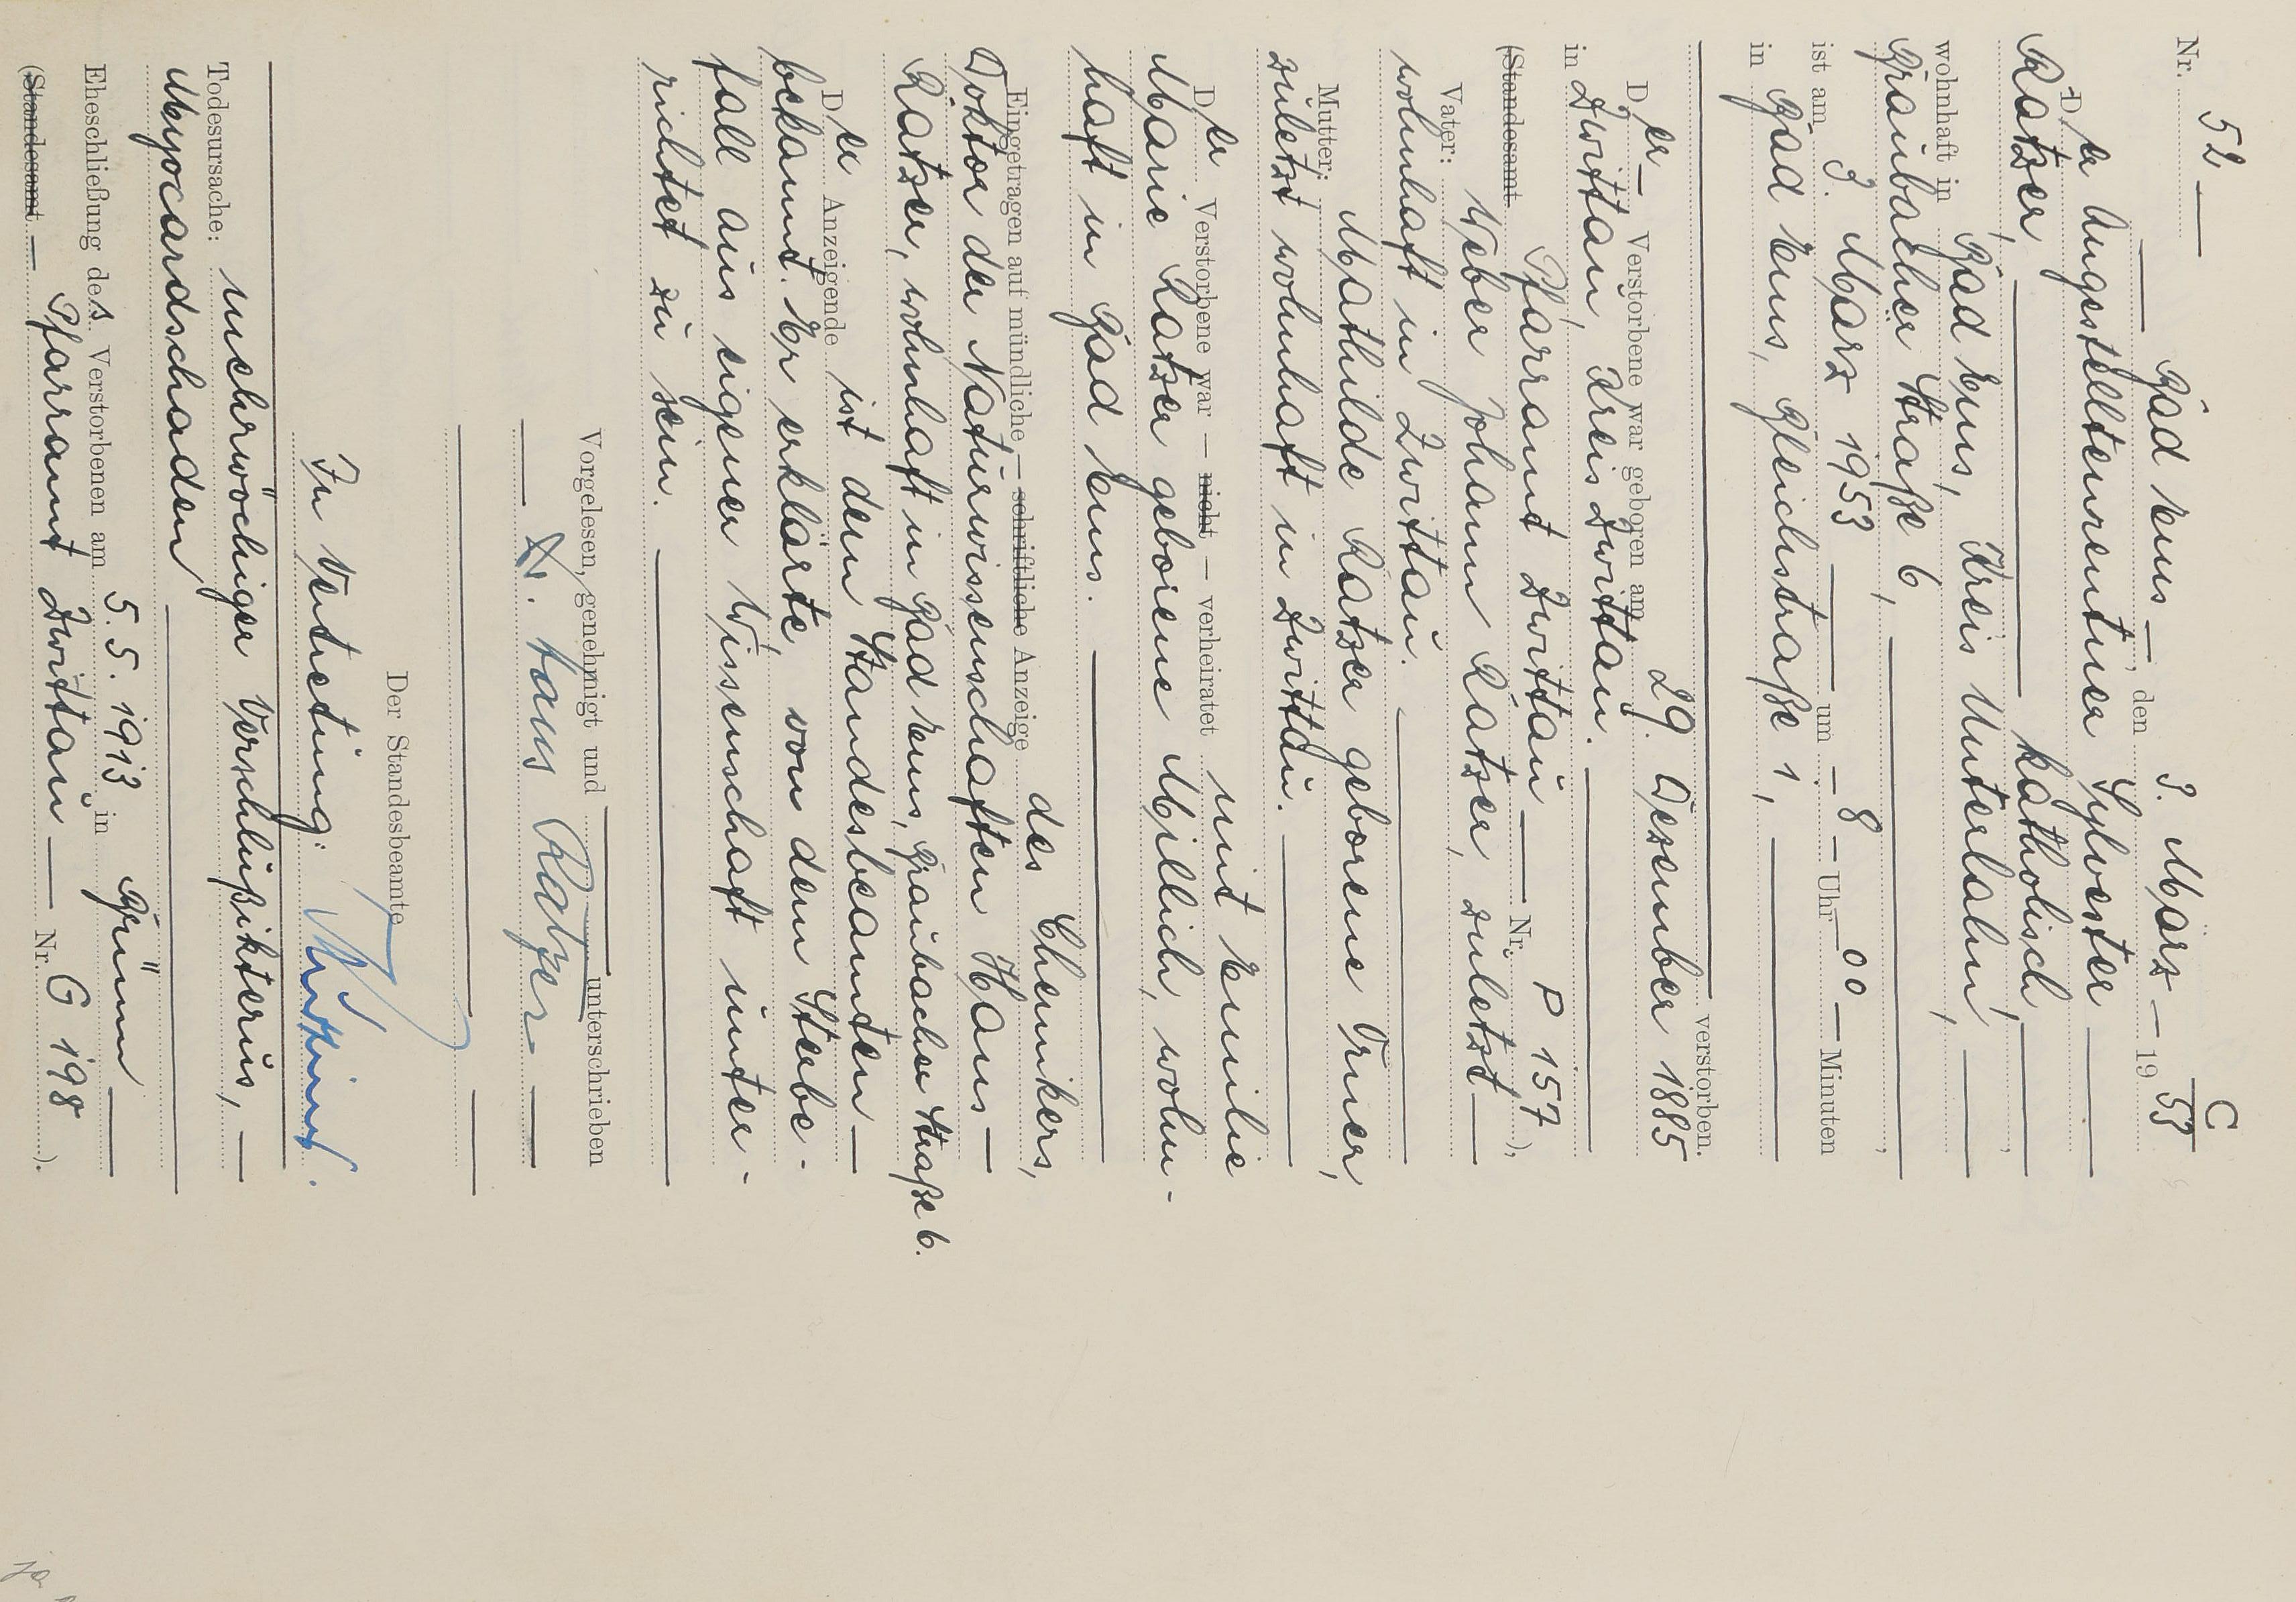 C
Nr. 52 —
— Bad Ems —, den 3. März — 19 53
Der Angestelltenrentner Sylvester —
Ratzer, — katholisch, —
wohnhaft in Bad Ems, Kreis Unterlahn, —
Braubacher Straße 6, —
ist am 3. März 1953 — um — 8 — Uhr — 00 — Minuten
in Bad Ems, Bleichstraße 1, —
— verstorben.
Der — Verstorbene war geboren am 29. Dezember 1885
in Zwittau, Kreis Zwittau. —
(Standesamt Pfarramt Zwittau — Nr. P 157 ).
Vater: Weber Johann Ratzer, zuletzt —
wohnhaft in Zwittau. —
Mutter: Mathilde Ratzer geborene Truer,
zuletzt wohnhaft in Zwittau. —
Der Verstorbene war — nicht — verheiratet mit Emilie
Marie Ratzer geborene Millich, wohn-
haft in Bad Ems. —
Eingetragen auf mündliche — schriftliche Anzeige des Chemikers,
Doktor der Naturwissenschaften Hans —
Ratzer, wohnhaft in Bad Ems, Braubacher Straße 6.
Der Anzeigende ist dem Standesbeamten —
bekannt. Er erklärte, von dem Sterbe-
fall aus eigener Wissenschaft unter-
richtet zu sein. —
Vorgelesen, genehmigt und unterschrieben
— Dr. Hans Ratzer —
Der Standesbeamte
In Vertretung:
Todesursache: mehrwöchiger Verschlußikterus, —
Myocardschaden —
Eheschließung des Verstorbenen am 5. 5. 1913 in Brünn —
(Standesamt — Pfarramt Zwittau — Nr. G 198 ).